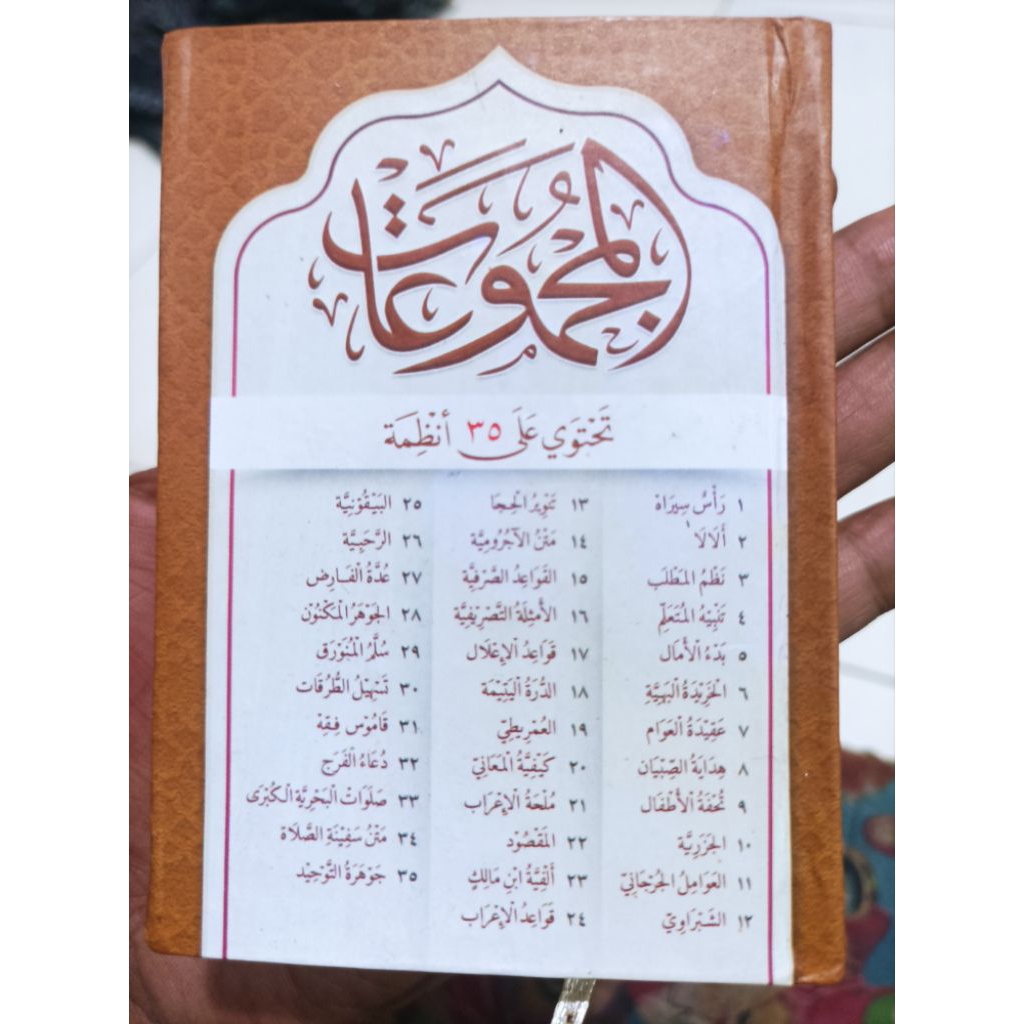 المجموعات
تَحْتَوِي عَلَى ٣٥ أَنْظِمَة
١ رَأْسُ سِيرَاهْ
٢ أَلَالَا
٣ نَظْمُ المَطْلَب
٤ تَنْبِيْهُ المُتَعَلِّم
٥ بَدْءُ الْأَمَال
٦ الْخَرِيْدَةُ الْبَهِيَّة
٧ عَقِيْدَةُ الْعَوَام
٨ هِدَايَةُ الصِّبْيَان
٩ تُحْفَةُ الْأَطْفَال
١٠ الجَزَرِيَّة
١١ العَوَامِلُ الْجُرْجَانِيّ
١٢ الشَّبْرَاوِيّ
١٣ تَنْوِيْرُ الْحِجَا
١٤ مَتْنُ الْآجُرُوْمِيَّة
١٥ القَوَاعِدُ الصَّرْفِيَّة
١٦ الأَمْثِلَةُ التَّصْرِيْفِيَّة
١٧ قَوَاعِدُ الْإِعْلَال
١٨ الدُّرَةُ الْيَتِيْمَة
١٩ العِمْرِيطِيّ
٢٠ كَيْفِيَّةُ الْمَعَانِيّ
٢١ مُلْحَةُ الْإِعْرَاب
٢٢ المَقْصُوْد
٢٣ أَلْفِيَّةُ ابْنِ مَالِكٍ
٢٤ قَوَاعِدُ الْإِعْرَاب
٢٥ البَيْقُوْنِيَّة
٢٦ الرَّحَبِيَّة
٢٧ عُدَّةُ الْفَارِض
٢٨ الجَوْهَرُ الْمَكْنُوْن
٢٩ سُلَّمُ الْمُنَوْرَق
٣٠ تَسْهِيْلُ الطُّرُقَات
٣١ قَامُوْس فِقِهْ
٣٢ دُعَاءُ الْفَرَج
٣٣ صَلَوَاتْ الْبَحْرِيَّة الْكُبْرَى
٣٤ مَتْنُ سَفِيْنَةِ الصَّلَاة
٣٥ جَوْهَرَةُ التَّوْحِيْد